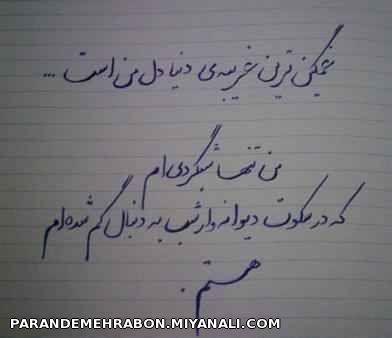 غمگین ترین غریبه ی دنیا دل من است ...
من تنها شبگردی ام
که در سکوت دیوانه وار شب به دنبال گم شده ام
هستم .
PARANDEMEHRABON.MIYANALI.COM